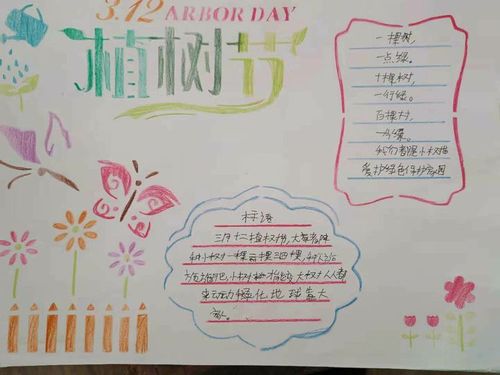 3.12 ARBOR DAY
植树节
一棵树,
一点绿。
十棵树,
一行绿。
百棵树,
一片绿。
我们都是小树苗
爱护绿色保护家园
标语
三月十二植树节,大家
种小树一棵两棵三四棵,
大树人人都
来动动绿化地球靠大
家。